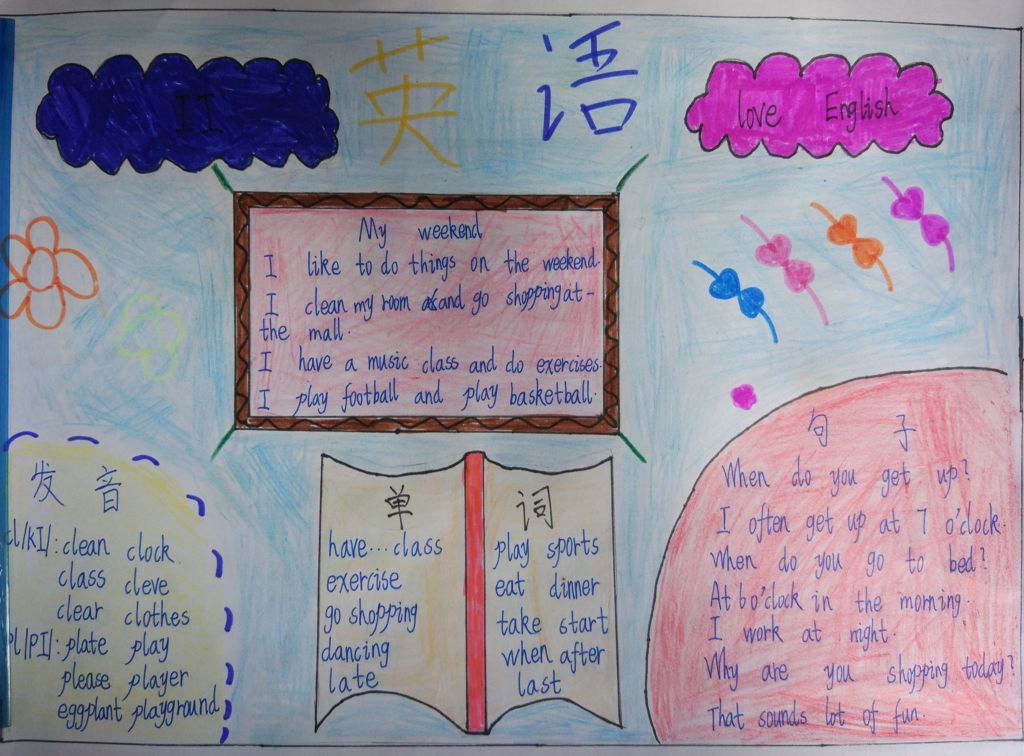 II
英语
love English
My weekend
I like to do things on the weekend.
I clean my room and go shopping at-
the mall.
I have a music class and do exercises.
I play football and play basketball.
发音
cl/kl/: clean clock
class cleve
clear clothes
pl/pl/: plate play
please player
eggplant playground
单词
have...class
exercise
go shopping
dancing
late
play sports
eat dinner
take start
when after
last
句子
When do you get up?
I often get up at 7 o'clock.
When do you go to bed?
At 6 o'clock in the morning.
I work at night.
Why are you shopping today?
That sounds lot of fun.